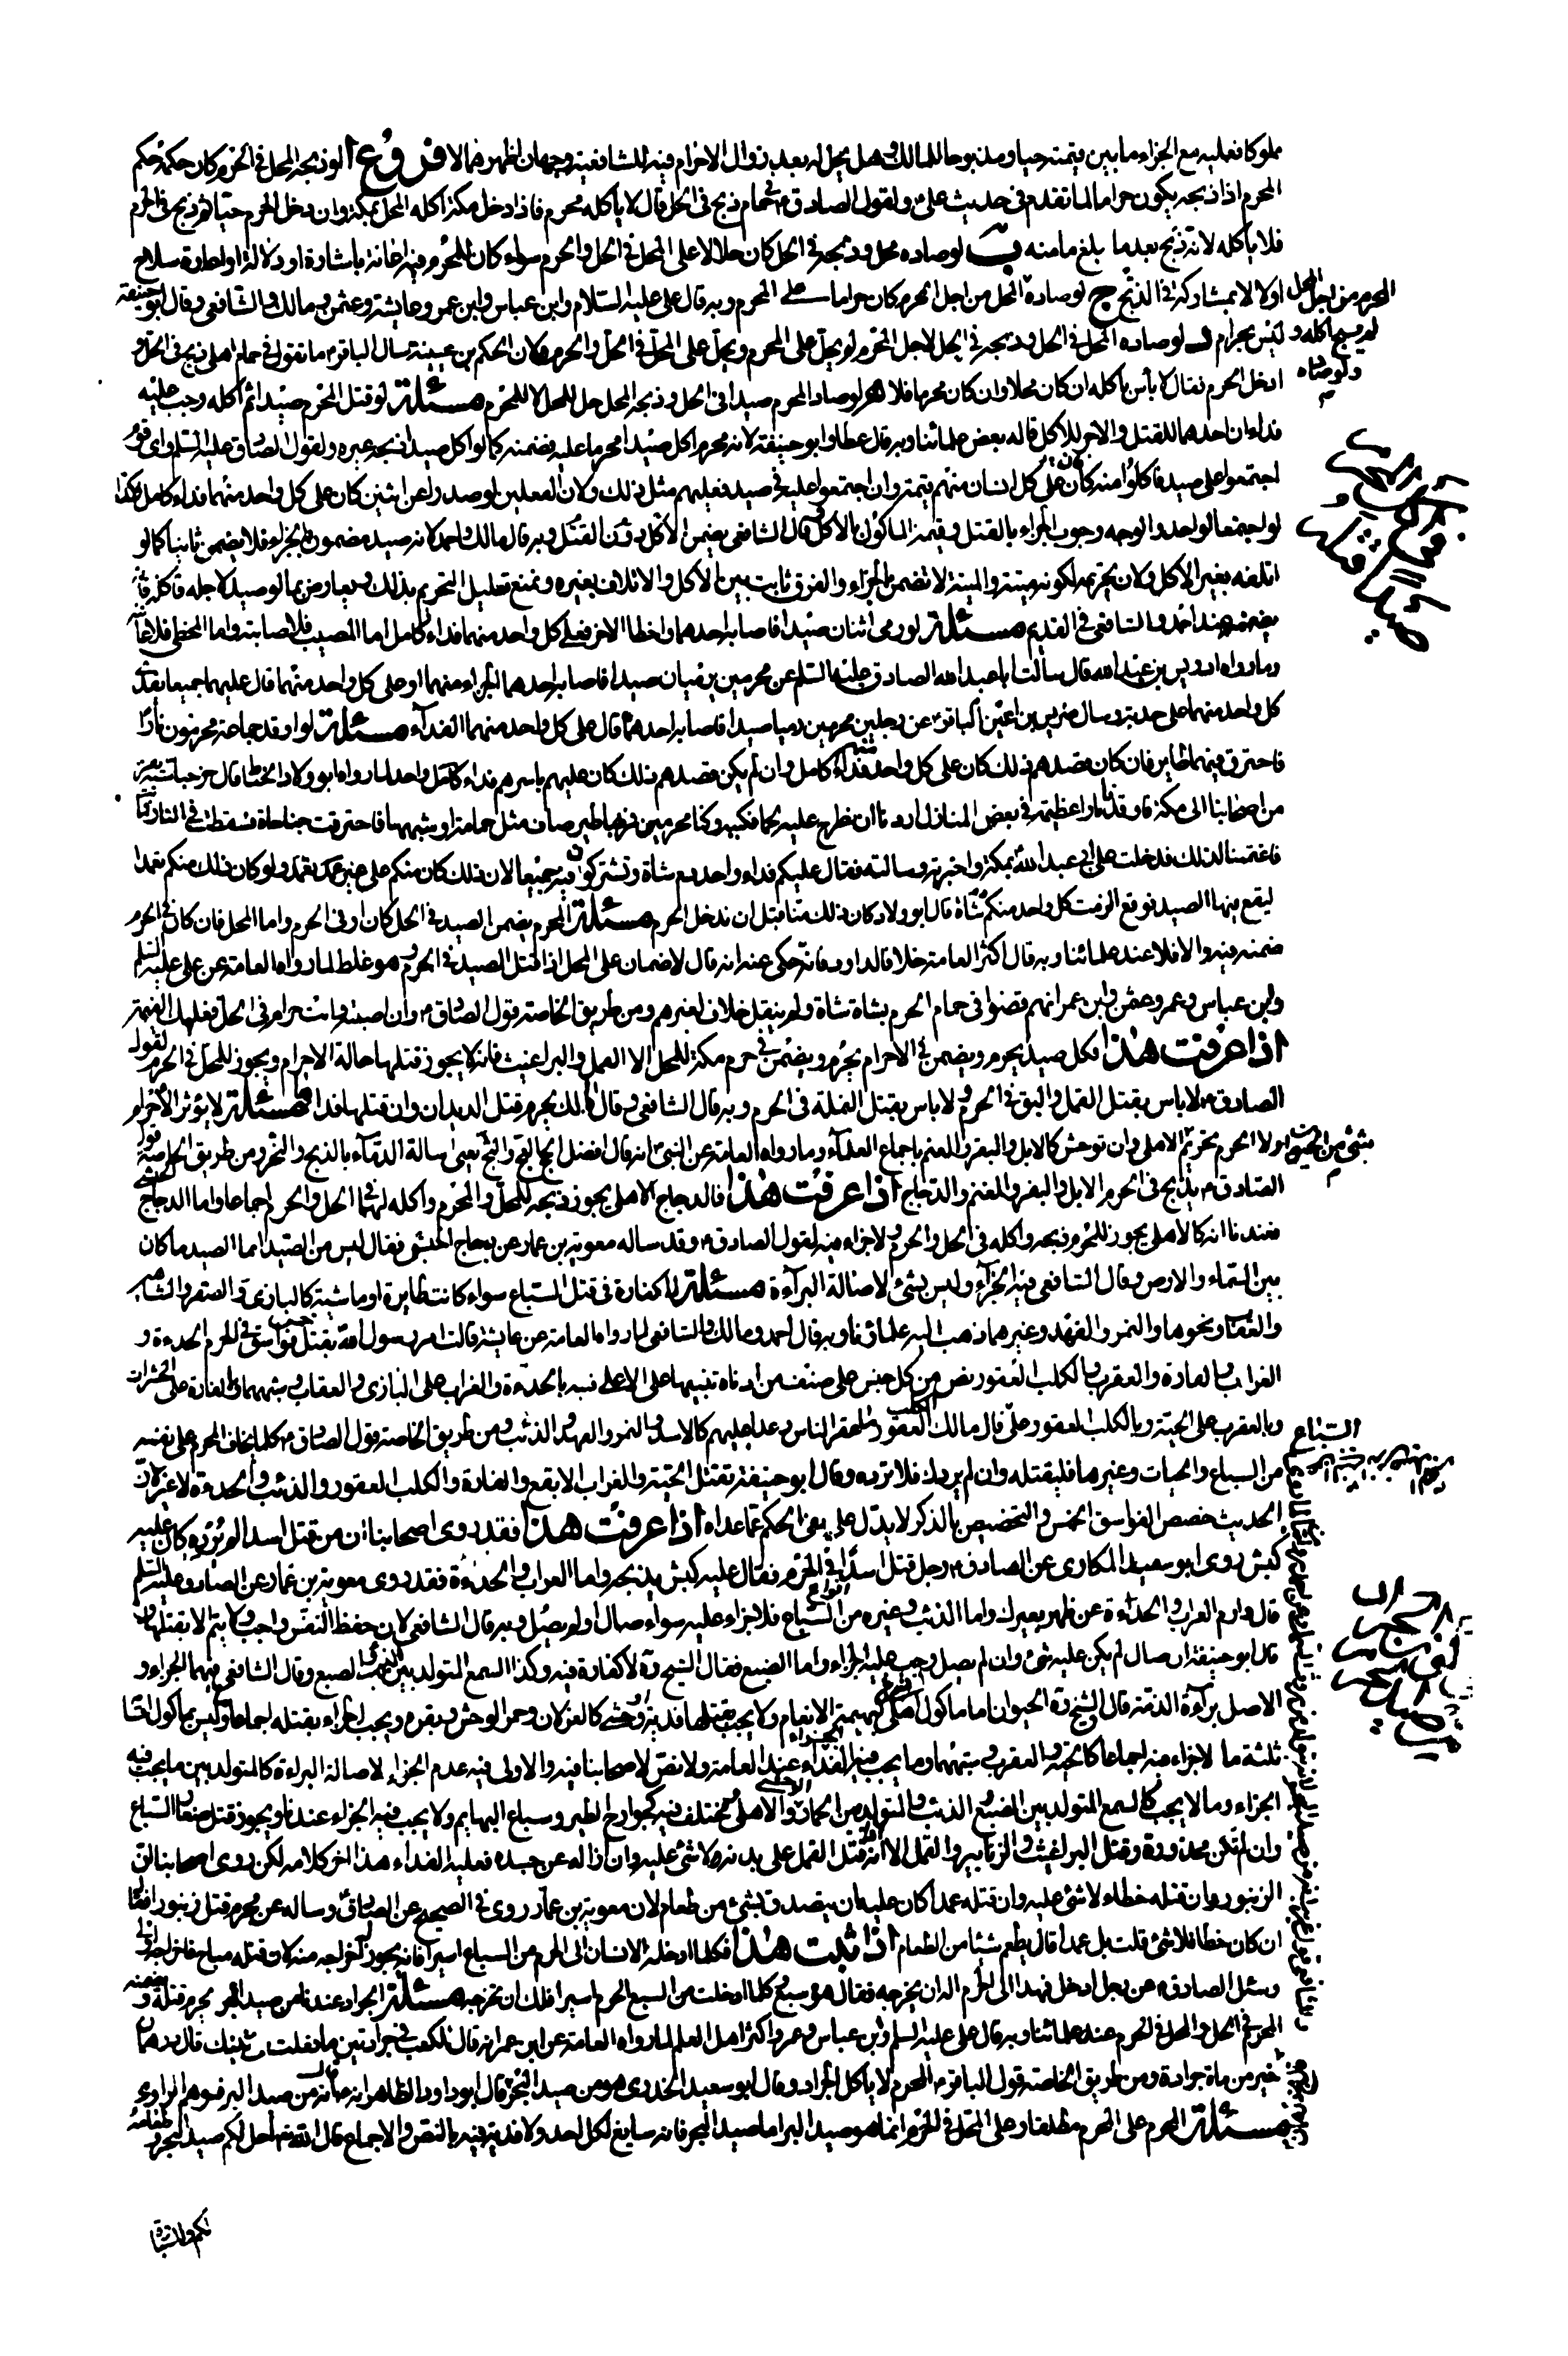 مملوكا فعليه مع الجزاء ما بين قيمته حيا ومذبوحا للمالك وهل يحل له بعد زوال الاحرام فيه للشافعية وجهان اظهرهما لا فروع ا لو ذبحه المحل في الحرم كان حكمه حكم
المحرم اذا ذبحه يكون حراما لما تقدم في حديث علي ع ولقول الصادق ع في حمام ذبح في الحل قال لا ياكله محرم فاذا دخل مكة اكله المحل بمكة وان دخل الحرم حيا ثم ذبح في الحرم
فلا ياكله لانه ذبح بعد ما بلغ مامنه ب لو صاده محل وذبحه في الحل كان حلالا على المحل في الحل والحرم سواء كان للمحرم فيه اعانة باشارة او دلالة او اعارة سلاح
اولا لا بمشاركة في الذبح ج لو صاده المحل من اجل المحرم كان حراما على المحرم وبه قال علي عليه السلام وابن عباس وابن عمر وعايشة وعثمن ومالك والشافعي وقال ابو حنيفة
ليس بحرام د لو صاده المحل في الحل وذبحه في الحل لاجل المحرم لم يحل على المحرم ويحل على المحل في الحل والحرم ولان الحكم بن عيينة سال الباقر ع ما تقول في حمام اهلي ذبح في الحل و
ادخل الحرم فقال لا باس باكله ان كان محلا وان كان محرما فلا هـ لو صاد المحرم صيدا في الحل وذبحه المحل حل للمحل لا للمحرم مسئلة لو قتل المحرم صيدا ثم اكله وجب عليه
فداءان احدهما للقتل والاخر للاكل قاله بعض علمائنا وبه قال عطا وابو حنيفة لانه محرم اكل صيدا محرما عليه فضمنه كما لو اكل صيدا ذبحه غيره ولقول الصادق عليه السلم واي قوم
اجتمعوا على صيد فاكلوا منه كان على كل انسان منهم قيمته وان اجتمعوا عليه في صيد فعليهم مثل ذلك ولان المعلين لو صدرا عن اثنين كان على كل واحد منهما فداء كامل فكذا
لو اجتمعا لواحد والوجه وجوب الجزاء بالقتل وقيمة الماكول بالاكل وقال الشافعي يضمن الاكل دون القتل وبه قال مالك واحمد لانه صيد مضمون بالجزاء فلا يضمن ثانيا كما لو
اتلفه بغير الاكل ولان تحريمه لكونه ميتة والميتة لا تضمن بالجزاء والفرق ثابت بين الاكل والاتلاف بغيره ونمنع تعليل التحريم بذلك ويعارض بما لو صيد لاجله فاكله فانه
يضمنه عند احمد والشافعي في القديم مسئلة لو رمى اثنان صيدا فاصابه احدهما واخطا الاخر فعلى كل واحد منهما فداء كامل اما المصيب فلاصابته واما المخطي فلاعانته
وما رواه ادريس بن عبد الله قال سالت ابا عبد الله الصادق عليه السلم عن محرمين يرميان صيدا فاصابه احدهما الجزاء منهما او على كل واحد منهما قال عليهما جميعا يفدي
كل واحد منهما على حدته وسال ضريس بن اعين الباقر ع عن رجلين محرمين رميا صيدا فاصابه احدهما قال على كل واحد منهما الفداء مسئلة لو اوقد جماعة محرمون نارا
فاحترق فيها طاير فان كان قصدهم ذلك كان على كل واحد منهم فداء كامل وان لم يكن قصدهم ذلك كان عليهم باسرهم فداء كامل واحد لما رواه ابو ولاد الحناط قال خرجنا ستة نفر
من اصحابنا الى مكة فاوقدنا نارا عظيمة في بعض المنازل اردنا ان نطرح عليه لحما نكببه وكنا محرمين فمر بها طير صاف مثل حمامة او شبهها فاحترقت جناحاه فسقط في النار فمات
فاغتممنا لذلك فدخلت على ابي عبد الله بمكة واخبرته وسالته فقال عليكم فداء واحد دم شاة وتشتركون فيه جميعا لان ذلك كان منكم على غير تعمد ولو كان ذلك منكم تعمدا
ليقع فيها الصيد فوقع الزمت كل واحد منكم شاة قال ابو ولاد كان ذلك منا قبل ان ندخل الحرم مسئلة المحرم يضمن الصيد في الحل كان او في الحرم واما المحل فان كان في الحرم
ضمنه فيه والا فلا عند علمائنا وبه قال اكثر العامة خلافا لداود فانه حكى عنه انه قال لا ضمان على المحل اذا قتل الصيد في الحرم وهو غلط لما رواه العامة عن علي عليه السلم
وابن عباس وعمر وعثمن وابن عمر انهم قضوا في حمام الحرم بشاة شاة ولم ينقل خلاف لغيرهم ومن طريق الخاصة قول الصادق ع وان اصبته وانت حرام في الحل فعليك القيمة
اذا عرفت هذا فكل صيد يحرم ويضمن في الاحرام يحرم ويضمن في حرم مكة للمحل الا القمل والبراغيث فانه لا يجوز قتلها حالة الاحرام ويجوز للمحل في الحرم لقول
الصادق ع لا باس بقتل القمل والبق في الحرم ولا باس بقتل النملة في الحرم وبه قال الشافعي وقال مالك يحرم قتل الديدان وان قتلها فداها مسئلة لا يؤثر الاحرام
ولا الحرم تحريم الاهلي وان توحش كالابل والبقر والغنم باجماع العلماء وما رواه العامة عن النبي ص انه قال افضل الحج العج والثج يعني اسالة الدماء بالذبح والنحر ومن طريق الخاصة قول
الصادق ع يذبح في الحرم الابل والبقر والغنم والدجاج اذا عرفت هذا فالدجاج الاهلي يجوز ذبحه للمحل والمحرم واكله لهما في الحل والحرم اجماعا واما الدجاج الحبشي
فعندنا انه كالاهلي يجوز للمحرم ذبحه واكله في الحل والحرم ولا جزاء فيه لقول الصادق ع وقد ساله معوية بن عمار عن دجاج الحبش فقال ليس من الصيد انما الصيد ما كان
بين السماء والارض وقال الشافعي فيه الجزاء وليس بشئ لاصالة البراءة مسئلة لا كفارة في قتل السباع سواء كانت طايرة او ماشية كالبازي والصقر والشاهين
والعقاب ونحوها والنمر والفهد وغيرهما ذهب اليه علماؤنا وبه قال احمد ومالك والشافعي لما رواه العامة عن عايشة قالت امر رسول الله بقتل خمس فواسق في الحرم الحدءة و
الغراب والفارة والعقرب والكلب العقور نص من كل جنس على صنف من ادناه تنبيها على الاعلى فنبه بالحدءة والغراب على البازي والعقاب وشبههما وبالفارة على الحشرات
وبالعقرب على الحية وبالكلب العقور على السباع قال مالك الكلب العقور ما عقر الناس وعدا عليهم كالاسد والنمر والفهد والذئب ومن طريق الخاصة قول الصادق ع كلما يخاف المحرم على نفسه
من السباع والحيات وغيرها فليقتله وان لم يردك فلا ترده وقال ابو حنيفة تقتل الحية والغراب الابقع والفارة والكلب العقور والذئب والحدءة لا غير لان
الحديث خصص الفواسق الخمس والتخصيص بالذكر لا يدل على نفي الحكم عما عداه اذا عرفت هذا فقد روى اصحابنا ان من قتل اسدا لم يرده كان عليه
كبش روى ابو سعيد المكاري عن الصادق ع رجل قتل اسدا في الحرم فقال عليه كبش يذبحه واما الغراب والحدءة فقد روى معوية بن عمار عن الصادق عليه السلم
قال وارم الغراب والحدءة عن ظهر بعيرك واما الذئب وغيره من انواع السباع فلا جزاء عليه سواء صال او لم يصل وبه قال الشافعي لان حفظ النفس واجب ولا يتم الا بقتلها و
قال ابو حنيفة ان صال لم يكن عليه شئ وان لم يصل وجب عليه الجزاء واما الضبع فقال الشيخ ره لا كفارة فيه وكذا السمع المتولد بين الذئب والضبع وقال الشافعي فيهما الجزاء و
الاصل براءة الذمة قال الشيخ ره الحيوان اما ماكول اهلي كبهيمة الانعام ولا يجب بقتلها فدية او وحشي كالغزلان وحمر الوحش وبقره ويجب الجزاء بقتله اجماعا وليس بماكول اقسامه
ثلثة ما لا جزاء فيه اجماعا كالحية والعقرب وشبههما وما يجب فيه الجزاء عند العامة ولا نص لاصحابنا فيه والاولى فيه عدم الجزاء لاصالة البراءة كالمتولد بين ما يجب فيه
الجزاء وما لا يجب كالسمع المتولد بين الضبع والذئب والمتولد من الحمار الوحشي والاهلي ومختلف فيه كجوارح الطير وسباع البهايم ولا يجب فيه الجزاء عندنا ويجوز قتل صغار السباع
وان لم تكن محذورة وقتل البراغيث والزنابير والقمل الا انه اذا قتل القمل على بدنه لا شئ عليه وان ازاله عن جسده فعليه الفداء هذا اخر كلامه لكن روى اصحابنا ان
الزنبور ان قتله خطاء لا شئ عليه وان قتله عمدا كان عليه ان يتصدق بشئ من طعام لان معوية بن عمار روى في الصحيح عن الصادق وساله عن محرم قتل زنبورا فقال
ان كان خطا فلا شئ قلت بل عمدا قال يطعم شيئا من الطعام اذا ثبت هذا فكلما ادخله الانسان الى الحرم من السباع اسيرا فانه يجوز له اخراجه منه لان قتله مباح فاخراجه اولى
وسئل الصادق ع عن رجل ادخل فهدا الى الحرم اله ان يخرجه فقال هو سبع وكلما ادخلت من السبع الحرم اسيرا فلك ان تخرجه مسئلة الجراد عندنا من صيد البر يحرم قتله ويضمنه
المحرم في الحل والمحل في الحرم عند علمائنا وبه قال علي عليه السلم وابن عباس وعمر واكثر اهل العلم لما رواه العامة عن ابن عمر انه قال لكعب في جرادتين ما جعلت في نفسك قال درهمان
خير من ماة جرادة ومن طريق الخاصة قول الباقر ع المحرم لا ياكل الجراد وقال ابو سعيد الخدري هو من صيد البحر قال ابو داود الظاهر انه من صيد البر فوهم الراوي
مسئلة المحرم على المحرم مطلقا وعلى المحل في الحرم انما هو صيد البر اما صيد البحر فانه سايغ لكل احد ولا فدية فيه بالنص والاجماع قال الله تعالى احل لكم صيد البحر وطعامه